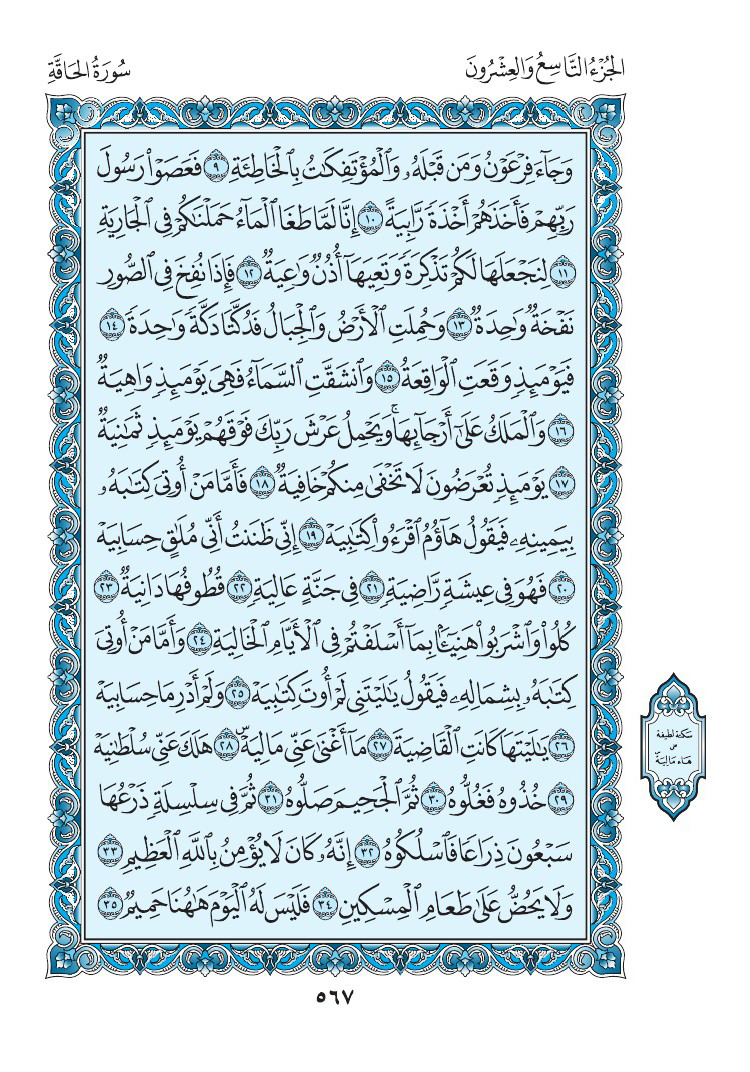 الجُزْءُ التَّاسِعُ وَالعِشْرُونَ
سُورَةُ الحَاقَّةِ
وَجَآءَ فِرْعَوْنُ وَمَن قَبْلَهُۥ وَٱلْمُؤْتَفِكَٰتُ بِٱلْخَاطِئَةِ ٩ فَعَصَوْا۟ رَسُولَ
رَبِّهِمْ فَأَخَذَهُمْ أَخْذَةً رَّابِيَةً ١٠ إِنَّا لَمَّا طَغَا ٱلْمَآءُ حَمَلْنَٰكُمْ فِى ٱلْجَارِيَةِ
١١ لِنَجْعَلَهَا لَكُمْ تَذْكِرَةً وَتَعِيَهَآ أُذُنٌ وَٰعِيَةٌ ١٢ فَإِذَا نُفِخَ فِى ٱلصُّورِ
نَفْخَةٌ وَٰحِدَةٌ ١٣ وَحُمِلَتِ ٱلْأَرْضُ وَٱلْجِبَالُ فَدُكَّتَا دَكَّةً وَٰحِدَةً ١٤
فَيَوْمَئِذٍ وَقَعَتِ ٱلْوَاقِعَةُ ١٥ وَٱنشَقَّتِ ٱلسَّمَآءُ فَهِىَ يَوْمَئِذٍ وَاهِيَةٌ
١٦ وَٱلْمَلَكُ عَلَىٰٓ أَرْجَآئِهَا ۚ وَيَحْمِلُ عَرْشَ رَبِّكَ فَوْقَهُمْ يَوْمَئِذٍ ثَمَٰنِيَةٌ
١٧ يَوْمَئِذٍ تُعْرَضُونَ لَا تَخْفَىٰ مِنكُمْ خَافِيَةٌ ١٨ فَأَمَّا مَنْ أُوتِىَ كِتَٰبَهُۥ
بِيَمِينِهِۦ فَيَقُولُ هَآؤُمُ ٱقْرَءُوا۟ كِتَٰبِيَهْ ١٩ إِنِّى ظَنَنتُ أَنِّى مُلَٰقٍ حِسَابِيَهْ
٢٠ فَهُوَ فِى عِيشَةٍ رَّاضِيَةٍ ٢١ فِى جَنَّةٍ عَالِيَةٍ ٢٢ قُطُوفُهَا دَانِيَةٌ ٢٣
كُلُوا۟ وَٱشْرَبُوا۟ هَنِيٓـًٔۢا بِمَآ أَسْلَفْتُمْ فِى ٱلْأَيَّامِ ٱلْخَالِيَةِ ٢٤ وَأَمَّا مَنْ أُوتِىَ
كِتَٰبَهُۥ بِشِمَالِهِۦ فَيَقُولُ يَٰلَيْتَنِى لَمْ أُوتَ كِتَٰبِيَهْ ٢٥ وَلَمْ أَدْرِ مَا حِسَابِيَهْ
٢٦ يَٰلَيْتَهَا كَانَتِ ٱلْقَاضِيَةَ ٢٧ مَآ أَغْنَىٰ عَنِّى مَالِيَهْ ۜ ٢٨ هَلَكَ عَنِّى سُلْطَٰنِيَهْ
٢٩ خُذُوهُ فَغُلُّوهُ ٣٠ ثُمَّ ٱلْجَحِيمَ صَلُّوهُ ٣١ ثُمَّ فِى سِلْسِلَةٍ ذَرْعُهَا
سَبْعُونَ ذِرَاعًا فَٱسْلُكُوهُ ٣٢ إِنَّهُۥ كَانَ لَا يُؤْمِنُ بِٱللَّهِ ٱلْعَظِيمِ ٣٣
وَلَا يَحُضُّ عَلَىٰ طَعَامِ ٱلْمِسْكِينِ ٣٤ فَلَيْسَ لَهُ ٱلْيَوْمَ هَٰهُنَا حَمِيمٌ ٣٥
سكتة لطيفة
على
هَاء مَالِيَهْ
٥٦٧